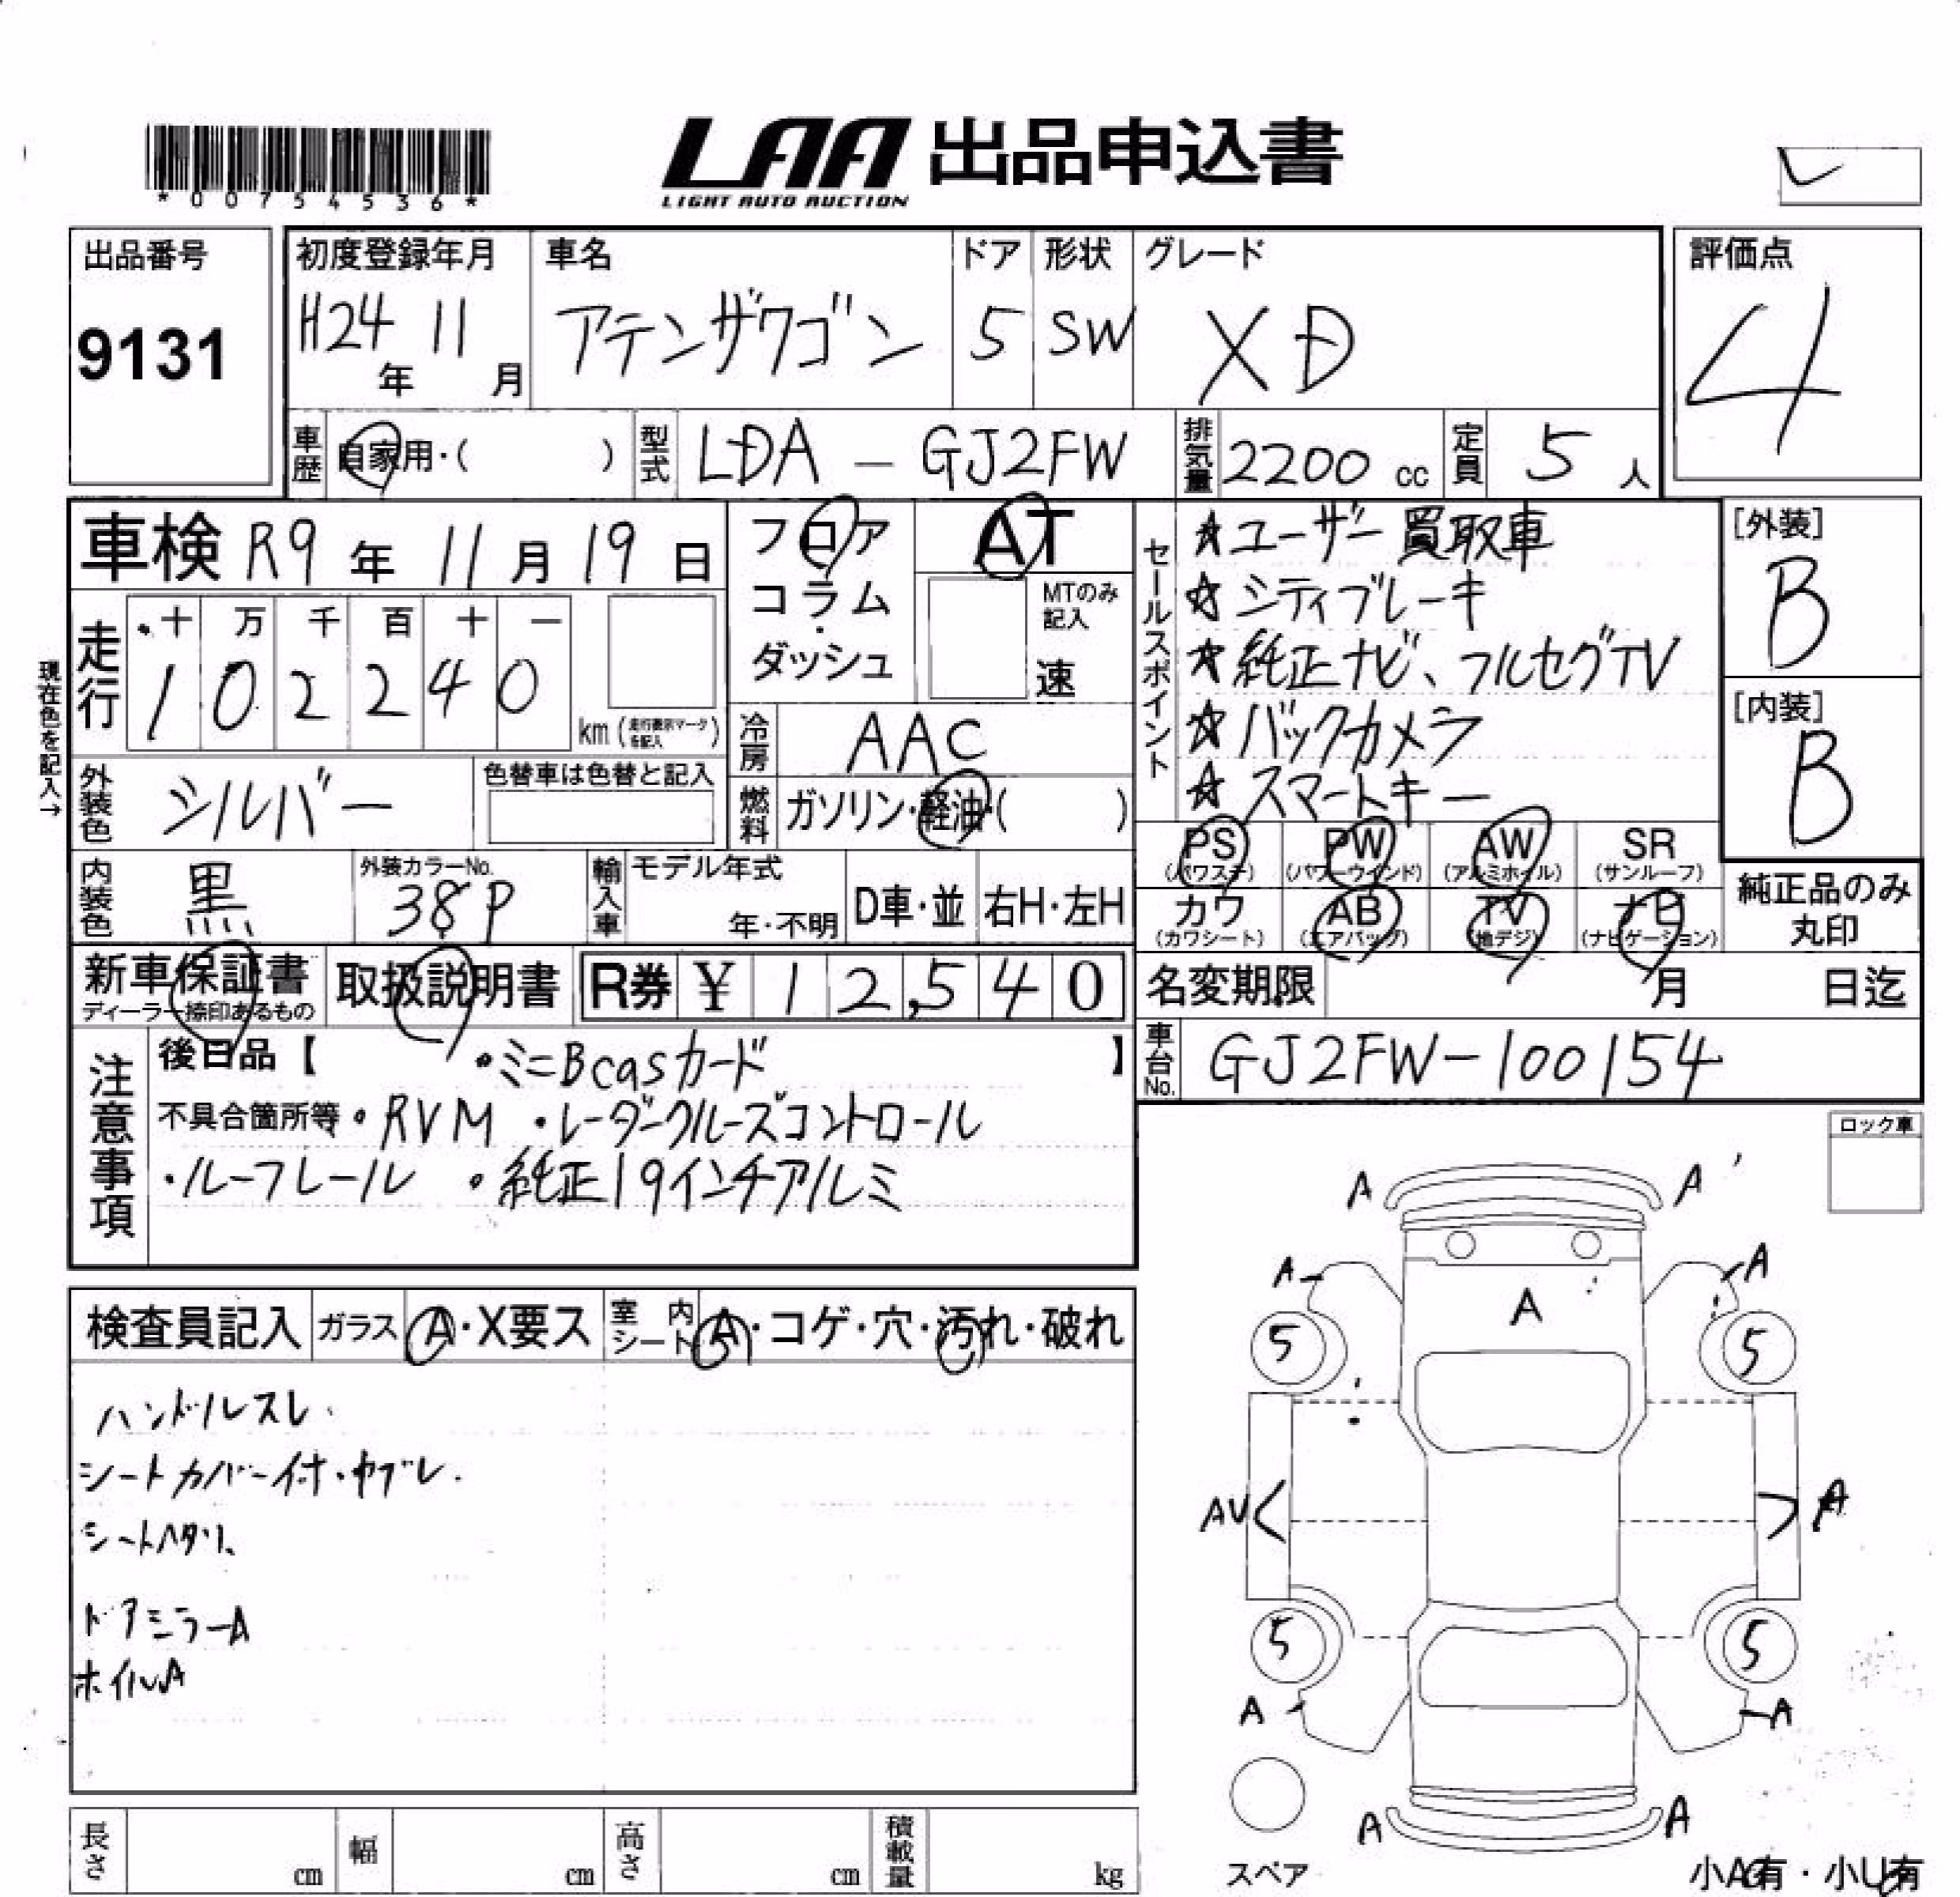 *00754536*
LAA 出品申込書
LIGHT AUTO AUCTION
出品番号
9131
初度登録年月
H24年 11月
車名
アテンザワゴン
ドア
5
形状
SW
グレード
XD
評価点
4
車歴 自家用・( )
型式 LDA - GJ2FW
排気量 2200 cc
定員 5 人
車検 R9年 11月 19日
フロア
コラム・
ダッシュ
AT
MTのみ記入
速
走行
十 万 千 百 十 一
1 0 2 2 4 0
km(走行表示マークを記入)
現在色を記入→
冷房 AAC
外装色 シルバー
色替車は色替と記入
燃料 ガソリン・軽油・( )
セールスポイント
☆ユーザー買取車
☆シティブレーキ
☆純正ナビ、フルセグTV
☆バックカメラ
☆スマートキー
[外装]
B
[内装]
B
PS (パワステ)
PW (パワーウインド)
AW (アルミホイル)
SR (サンルーフ)
カワ (カワシート)
AB (エアバッグ)
TV (地デジ)
ナビ (ナビゲーション)
純正品のみ
丸印
内装色 黒
外装カラーNo.
38P
輸入車 モデル年式
年・不明
D車・並
右H・左H
新車保証書
ディーラー捺印あるもの
取扱説明書
R券 ¥ 12,540
名変期限 月 日迄
車台No. GJ2FW-100154
注意事項
後日品【 ・ミニBcasカード 】
不具合箇所等・RVM ・レーダークルーズコントロール
・ルーフレール ・純正19インチアルミ
ロック車
検査員記入 ガラス A・X要ス 室内シート A・コゲ・穴・汚れ・破れ
ハンドルスレ.
シートカバー付・ヤブレ.
シートヘタリ、
ドアミラーA
ホイルA
A A
A A
A
5 5
AV A
5 5
A A
A A
スペア
小A有・小U有
長さ cm
幅 cm
高さ cm
積載量 kg